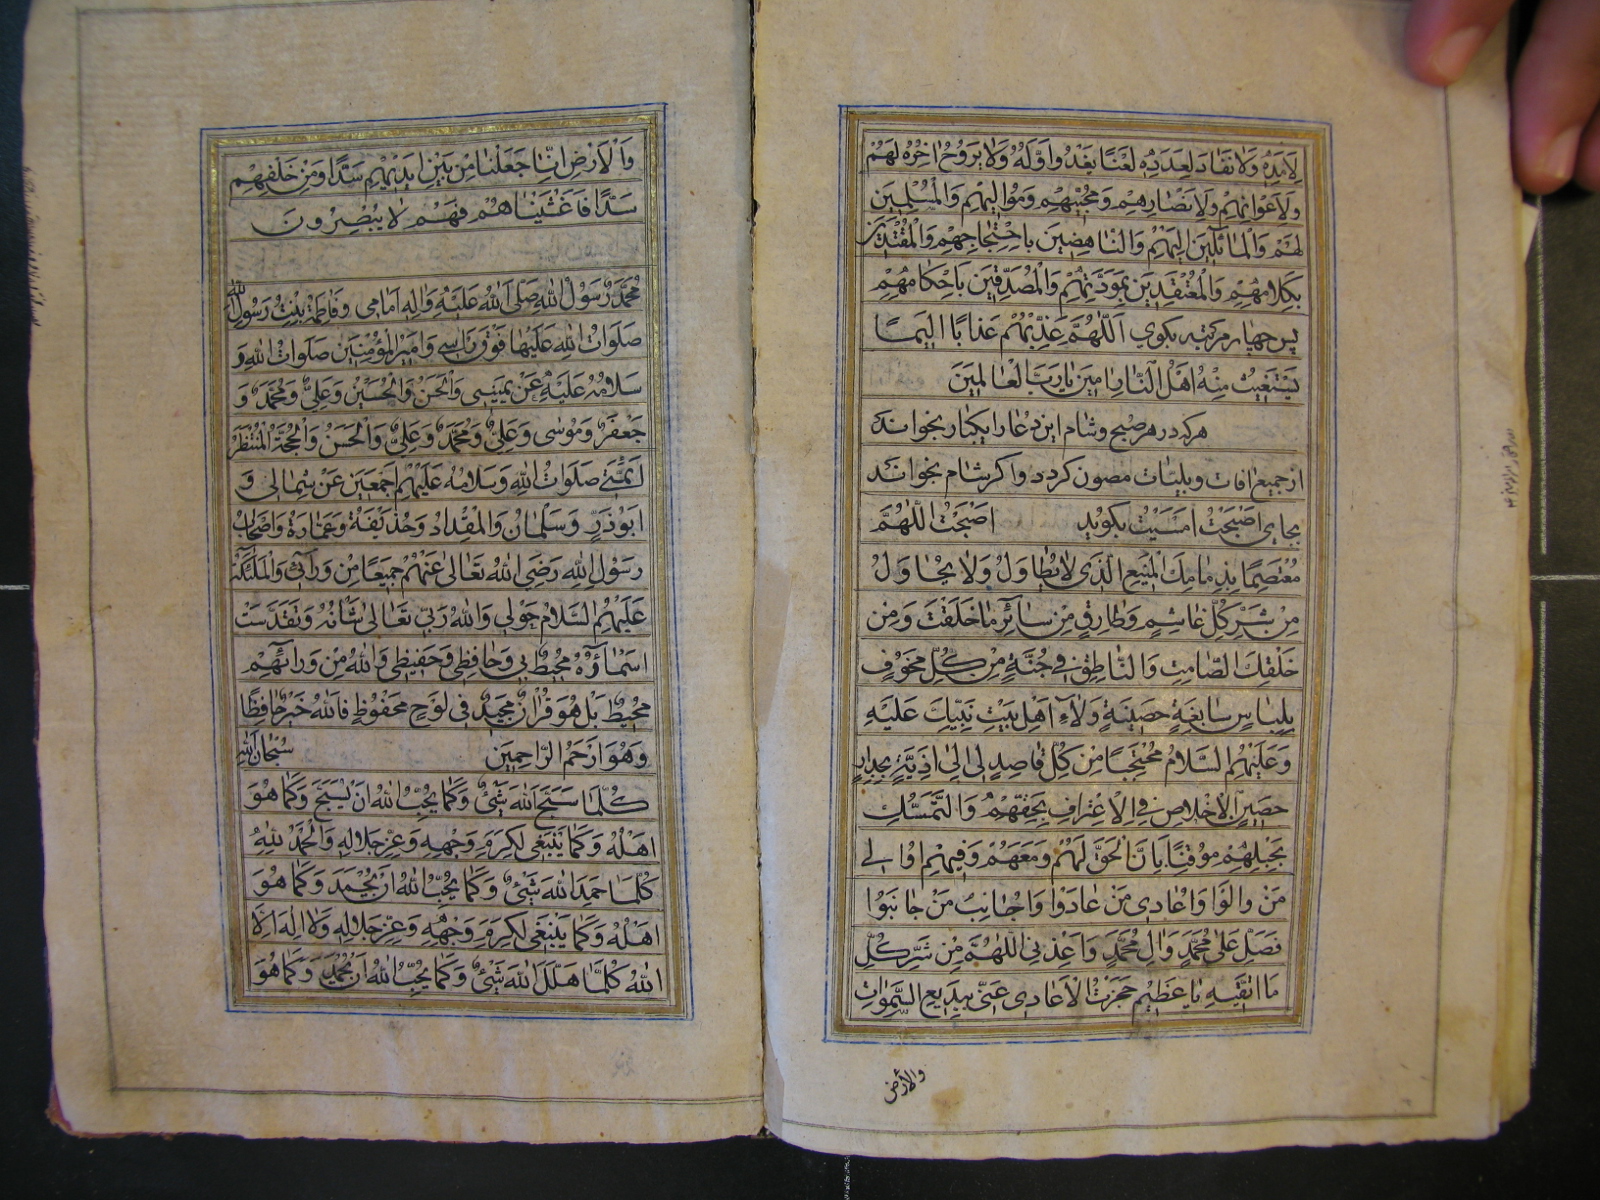 لِاَمَدِهِ وَلَا نَفَادَ لِعَدَدِهِ لَعْنًا يَغْدُو اَوَّلُهُ وَلَا يَرُوحُ اٰخِرُهُ لَهُمْ
وَلِاَعْوَانِهِمْ وَلِاَنْصَارِهِمْ وَمُحِبّيهِمْ وَمَوَالِيهِمْ وَالْمُسَلِّمِينَ
لَهُمْ وَالْمَائِلِينَ اِلَيْهِمْ وَالنَّاهِضِينَ بِاحْتِجَاجِهِمْ وَالْمُقْتَدِينَ
بِكَلَامِهِمْ وَالْمُعْتَقِدِينَ بِمَوَدَّتِهِمْ وَالْمُصَدِّقِينَ بِاَحْكَامِهِمْ
پس چهار مرتبه بكوى اَللّٰهُمَّ عَذِّبْهُمْ عَذَابًا اَلِيمًا
يَسْتَغِيثُ مِنْهُ اَهْلُ النَّارِ اٰمِينَ يَا رَبَّ الْعَالَمِينَ
هر كه در هر صبح وشام اين دعا را يكبار بخواند
از جميع افات وبليات مصون كردد واكر شام بخواند
بجاى اَصْبَحْتُ اَمْسَيْتُ بكويد اَصْبَحْتُ اللّٰهُمَّ
مُعْتَصِمًا بِذِمَامِكَ الْمَنِيعِ الَّذِى لَا يُطَاوَلُ وَلَا يُحَاوَلُ
مِنْ شَرِّ كُلِّ غَاشِمٍ وَطَارِقٍ مِنْ سَائِرِ مَا خَلَقْتَ وَمَنْ
خَلَقْتَ الصَّامِتِ وَالنَّاطِقِ فِى جُنَّةٍ مِنْ كُلِّ مَخُوفٍ
بِلِبَاسٍ سَابِغَةٍ حَصِينَةٍ وَلَاۤءِ اَهْلِ بَيْتِ نَبِيِّكَ عَلَيْهِ
وَعَلَيْهِمُ السَّلَامُ مُحْتَجِبًا مِنْ كُلِّ قَاصِدٍ لِى اِلٰى اَذِيَّةٍ بِجِدَارٍ
حَصِينٍ الْاِخْلَاصِ فِى الْاِعْتِرَافِ بِحَقِّهِمْ وَالتَّمَسُّكِ
بِحَبْلِهِمْ مُوقِنًا بِاَنَّ الْحَقَّ لَهُمْ وَمَعَهُمْ وَفِيهِمْ اُوَالِى
مَنْ وَالَوْا وَاُعَادِى مَنْ عَادَوْا وَاُجَانِبُ مَنْ جَانَبُوا
فَصَلِّ عَلٰى مُحَمَّدٍ وَاٰلِ مُحَمَّدٍ وَاَعِذْنِى اللّٰهُمَّ مِنْ شَرِّ كُلِّ
مَا اَتَّقِيهِ يَا عَظِيمُ حَجَزْتُ الْاَعَادِى عَنّى بِبَدِيعِ السَّمٰوَاتِ
والارض
وَالْاَرْضِ اِنَّا جَعَلْنَا مِنْ بَيْنِ اَيْدِيهِمْ سَدًّا وَمِنْ خَلْفِهِمْ
سَدًّا فَاَغْشَيْنَاهُمْ فَهُمْ لَا يُبْصِرُونَ
مُحَمَّدٌ رَسُولُ اللّٰهِ صَلَّى اللّٰهُ عَلَيْهِ وَاٰلِهِ اَمَامِى وَفَاطِمَةُ بِنْتُ رَسُولِ اللّٰهِ
صَلَوَاتُ اللّٰهِ عَلَيْهَا فَوْقَ رَاْسِى وَاَمِيرُ الْمُؤْمِنِينَ صَلَوَاتُ اللّٰهِ وَ
سَلَامُهُ عَلَيْهِ عَنْ يَمِينِى وَالْحَسَنُ وَالْحُسَيْنُ وَعَلِىٌّ وَمُحَمَّدٌ وَ
جَعْفَرٌ وَمُوسٰى وَعَلِىٌّ وَمُحَمَّدٌ وَعَلِىٌّ وَالْحَسَنُ وَالْحُجَّةُ الْمُنْتَظَرُ
اَئِمَّتِى صَلَوَاتُ اللّٰهِ وَسَلَامُهُ عَلَيْهِمْ اَجْمَعِينَ عَنْ شِمَالِى وَ
اَبُوذَرٍّ وَسَلْمَانُ وَالْمِقْدَادُ وَحُذَيْفَةُ وَعَمَّارَةُ وَاَصْحَابُ
رَسُولِ اللّٰهِ رَضِىَ اللّٰهُ تَعَالٰى عَنْهُمْ جَمِيعًا مِنْ وَرَائِى وَالْمَلٰئِكَةُ
عَلَيْهِمُ السَّلَامُ حَوْلِى وَاللّٰهُ رَبِّى تَعَالٰى شَاْنُهُ وَتَقَدَّسَتْ
اَسْمَاۤؤُهُ مُحِيطٌ بِى وَحَافِظِى وَحَفِيظِى وَاللّٰهُ مِنْ وَرَاۤئِهِمْ
مُحِيطٌ بَلْ هُوَ قُرْاٰنٌ مَجِيدٌ فِى لَوْحٍ مَحْفُوظٍ فَاللّٰهُ خَيْرٌ حَافِظًا
وَهُوَ اَرْحَمُ الرَّاحِمِينَ سُبْحَانَ اللّٰهِ
كُلَّمَا سَبَّحَ اللّٰهَ شَىْءٌ وَكَمَا يُحِبُّ اللّٰهُ اَنْ يُسَبَّحَ وَكَمَا هُوَ
اَهْلُهُ وَكَمَا يَنْبَغِى لِكَرَمِ وَجْهِهِ وَعِزِّ جَلَالِهِ وَالْحَمْدُ لِلّٰهِ
كُلَّمَا حَمِدَ اللّٰهَ شَىْءٌ وَكَمَا يُحِبُّ اللّٰهُ اَنْ يُحْمَدَ وَكَمَا هُوَ
اَهْلُهُ وَكَمَا يَنْبَغِى لِكَرَمِ وَجْهِهِ وَعِزِّ جَلَالِهِ وَلَا اِلٰهَ اِلَّا
اللّٰهُ كُلَّمَا هَلَّلَ اللّٰهَ شَىْءٌ وَكَمَا يُحِبُّ اللّٰهُ اَنْ وَكَمَا هُوَ